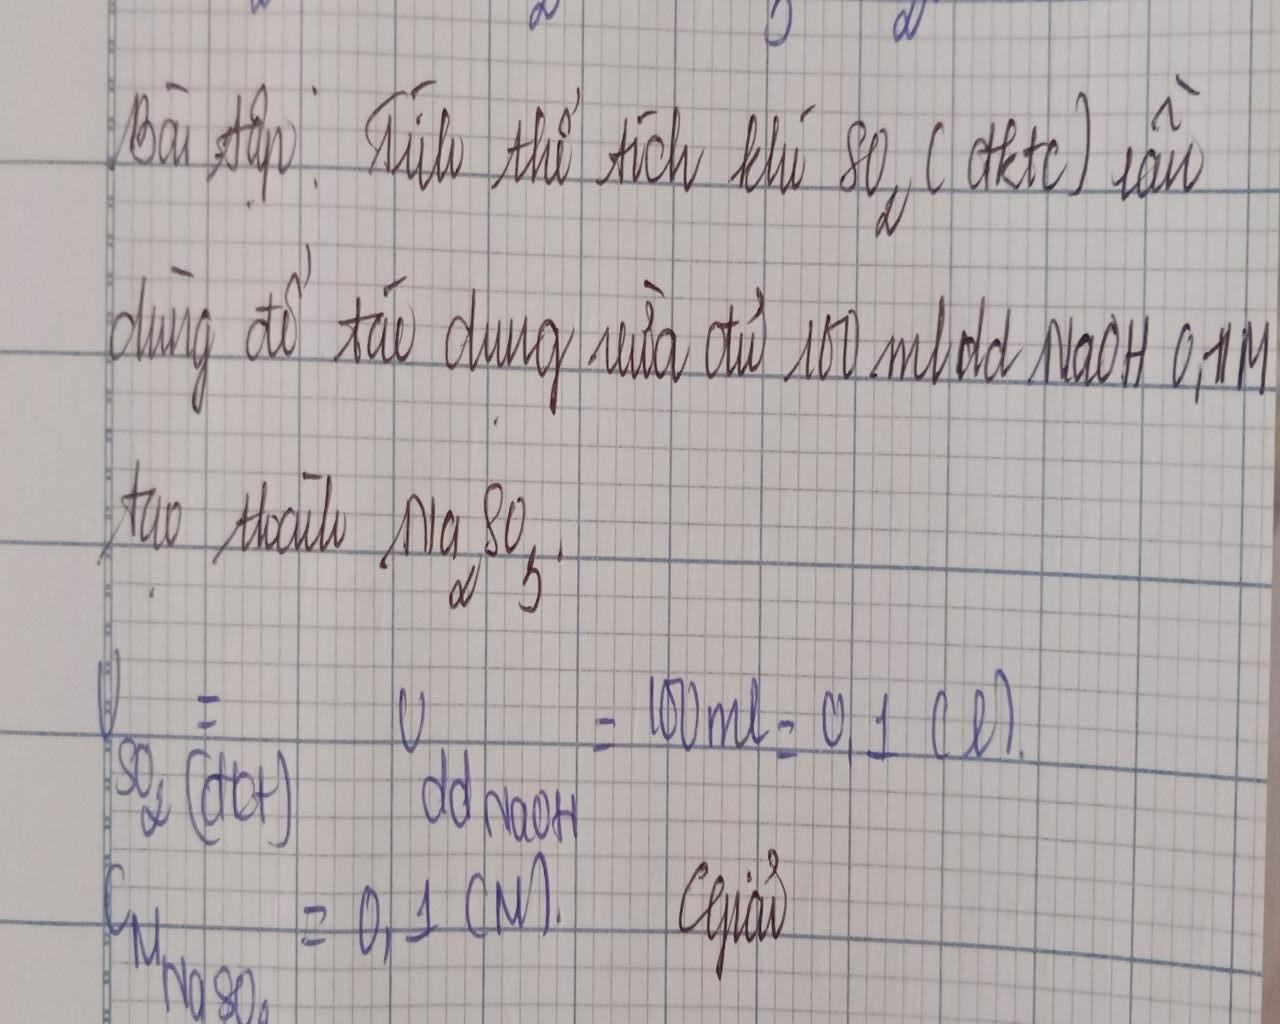 Bài tập: Tính thể tích khí SO2 (đktc) cần
dùng để tác dụng vừa đủ 100 ml dd NaOH 0,1M
tạo thành Na2SO3.
V SO2 (đkt) = V dd NaOH = 100ml = 0,1 (l).
CM NaSO3 = 0,1 (M). Giải